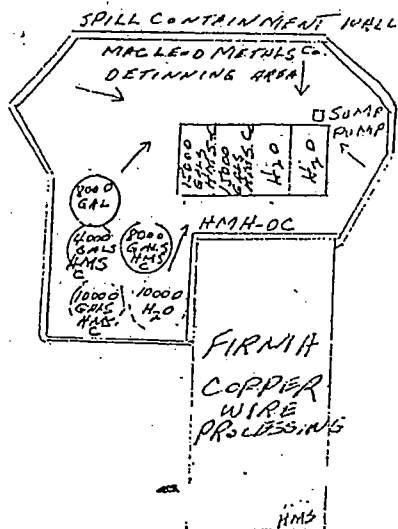 SPILL CONTAINMENT WALL
MACLEOD METALS Co.
DETINNING AREA
SUMP
PUMP
15000
GALS
HMS.C
15000
GALS
HMS.C
H2O
H2O
8000
GAL
4000
GALS
HMS
C
8000
GALS
HMS
C
HMH-OC
10000
GALS
HMS.
C
10000
H2O
FIRNIA
COPPER
WIRE
PROCESSING
HMS